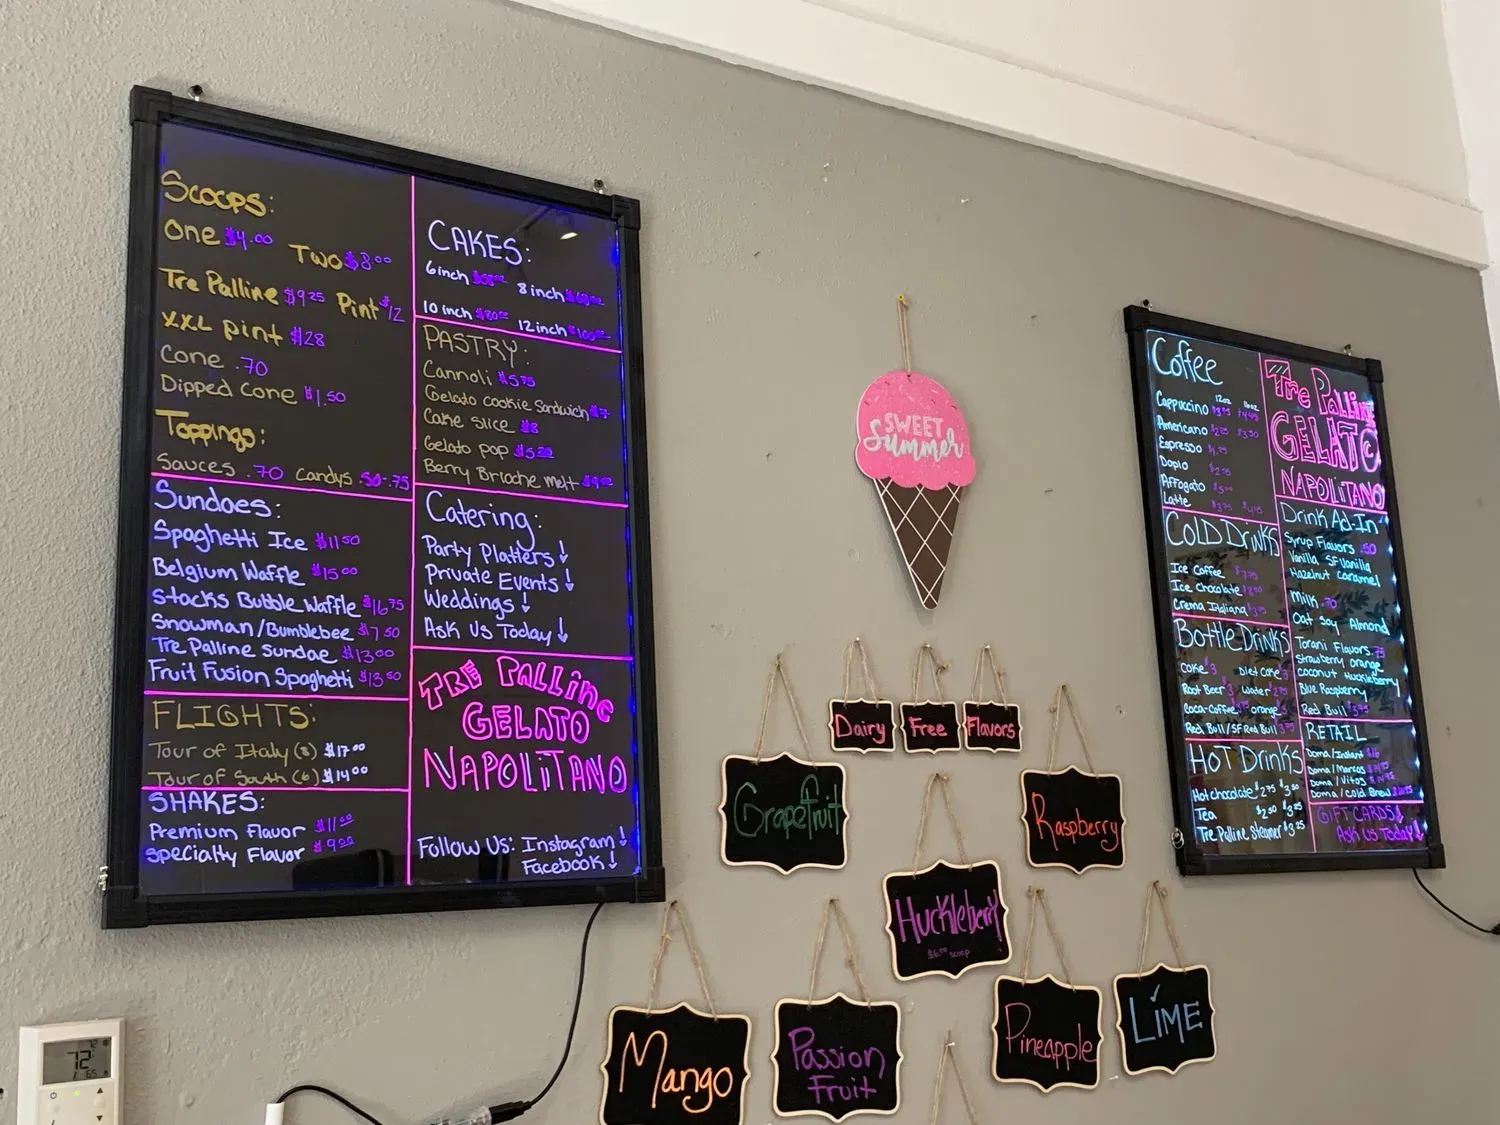 Scoops:
One $4.00 Two $8.00
Tre Palline $9.25 Pint $12
XXL pint $28
Cone .70
Dipped Cone $1.50
Toppings:
Sauces .70 Candys .50-.75
Sundaes:
Spaghetti Ice $11.50
Belgium Waffle $15.00
Stacks Bubble Waffle $16.75
Snowman/Bumblebee $7.50
Tre Palline Sundae $13.00
Fruit Fusion Spaghetti $13.50
FLIGHTS:
Tour of Italy (8) $17.00
Tour of South (6) $14.00
SHAKES:
Premium Flavor $11.00
Specialty Flavor $9.00
CAKES:
6inch 8inch
10inch 12inch
PASTRY:
Cannoli $5.75
Gelato cookie Sandwich $7
Cake slice $8
Gelato pop
Berry Brioche melt
Catering:
Party Platters!
Private Events!
Weddings!
Ask Us Today!
TRE PALLiNe
GELATO
NAPOLiTANO
Follow Us: Instagram!
Facebook!
SWEET
Summer
Dairy
Free
Flavors
Grapefruit
Raspberry
Huckleberry
Mango
Passion
Fruit
Pineapple
LiME
Coffee
12oz 16oz
Cappuccino
Americano
Espresso
Dopio
Affogato
Latte
COLD DriNKS
Ice Coffee
Ice Chocolate
Crema Italiana
Bottle Drinks
Coke $3 Diet Coke
Root Beer Water
Coca-Coffee Orange
Red Bull/SF Red Bull
HOT DRiNKS
Hot chocolate $2.75
Tea
Tre Palline Steamer
Tre PalliNe
GELATO
NAPOLiTANO
Drink Ad-In
Syrup Flavors .50
Vanilla SF Vanilla
Hazelnut Caramel
Milk
Oat Soy Almond
Torani Flavors .75
Strawberry Orange
Coconut Huckleberry
Blue Raspberry
Red Bull
RETAIL
Doma/Instant
Doma/Marcos
Doma/Vitos
Doma/Cold Brew
GiFT CARDS!
Ask Us Today!
72